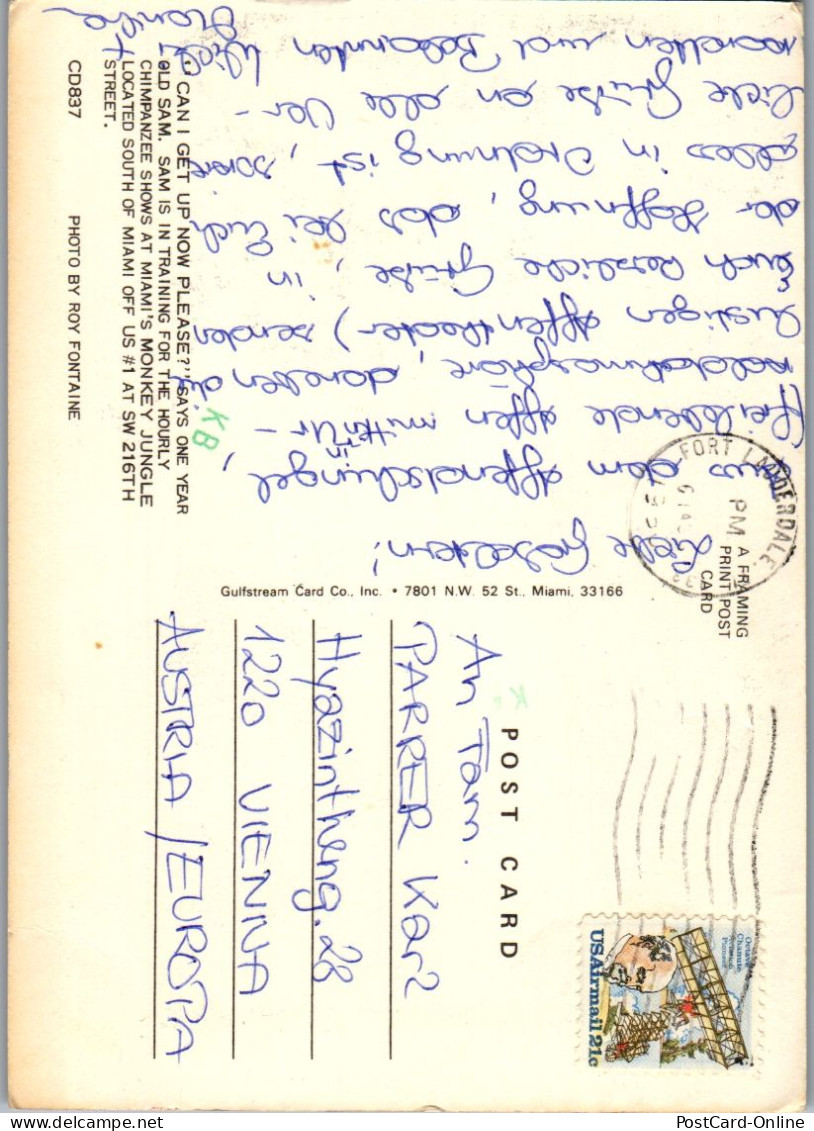 "CAN I GET UP NOW PLEASE?" SAYS ONE YEAR
OLD SAM. SAM IS IN TRAINING FOR THE HOURLY
CHIMPANZEE SHOWS AT MIAMI'S MONKEY JUNGLE
LOCATED SOUTH OF MIAMI OFF US #1 AT SW 216TH
STREET.
CD837 PHOTO BY ROY FONTAINE
KB
Liebe Großeltern!
Aus dem Affendschungel,
(freilebende Affen mitten in Ur-
waldatmosphäre, daneben die
lustigen Affentheater) senden
Euch herzliche Grüße, in
der Hoffnung, das bei Euch
alles in Ordnung ist, sowie
liebe Grüße an alle Ver-
wandten und Bekannten
+ Monika
Gulfstream Card Co., Inc. • 7801 N.W. 52 St., Miami, 33166
A FRAMING
PRINT POST
CARD
FORT LAUDERDALE,
PM
POST CARD
Octave
Chanute
Aviation
Pioneer
USAirmail 21c
An Fam.
PARRER Karl
Hyazintheng. 28
1220 VIENNA
AUSTRIA/EUROPA
PostCard-Online